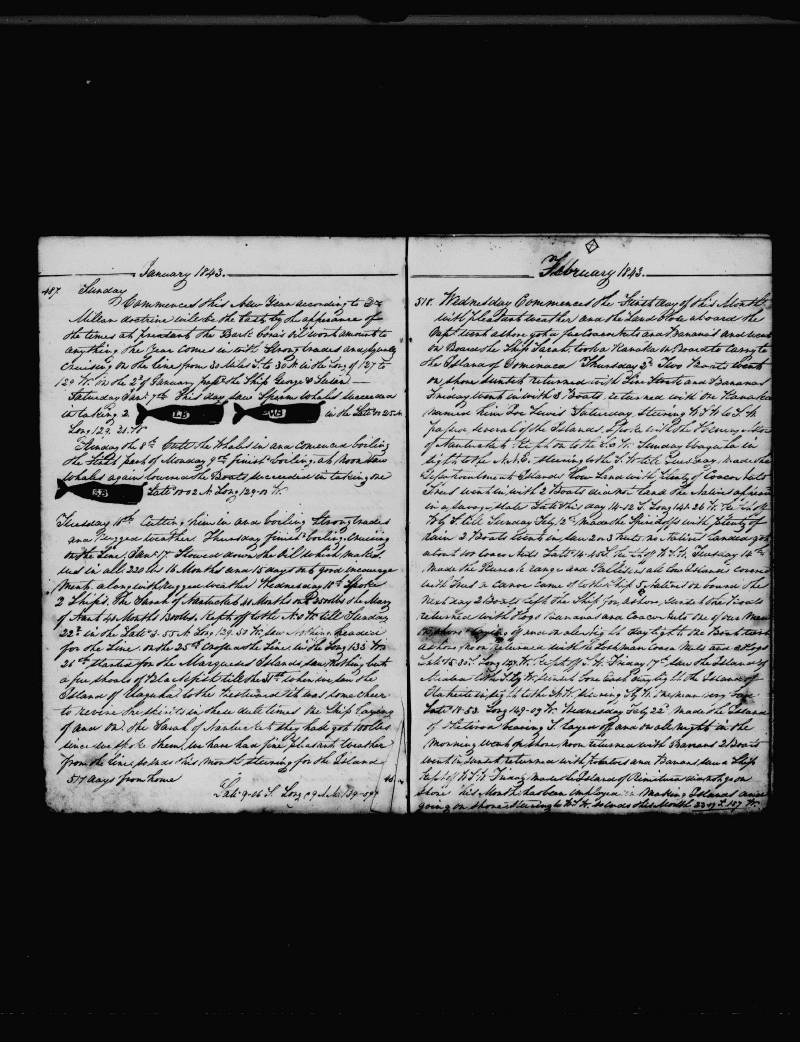 January 1843.
487. Sunday
Commences this New Year according to
Millar doctrine will be the last by the appearance of
the times at preasant the Bark Cora's oil wont amount to
anything the Year comes in with Strong trades and
cruising on the line from 30 Miles S. to 30 N. in the Long of 127 to
129 W. on the 2d of January the Ship George &
Saturday Jan. 7th This day saw Sperm Whales succeeded
in taking 2 LB WB in the Lat 0-25 N.
Long 129. 21. W
Sunday the 8th the Whales in and comenced boiling
the first part of Monday 9th finish boiling at Noon saw
whales again lowered the Boats succeeded in taking one
SB Late 0-02 N. Long 129-01 W.
Tuesday 10th Cutting him in and boiling Strong trades
and Rugged weather Thursday finish boiling cruising
on the Line, Jan 17. Stowed down the Oil which makes
us in all 220 bbls 16 Months and 15 days out good encourage
ment along with Rugged weather Wednesday 18th Spoke
2 Ships. The Sarah of Nantucket 41 Months out 2500 bbls the Mary
of 41 Months 1300 bbls. Kept off to the till Sunday
22d in the Late 3-55 N. Long 129.50 W. saw Nothing headed
for the Line. on the 25th Cross the Line. in the Long 133 W
26th started for the Marquesas Islands, saw Nothing but
a few shoals of till the 31st when we saw the
Island of to the Westward it was some cheer
to revive the spirits in these dull times the Ship laying
of and on the Sarah of Nantucket they had got 100 bbls
since we spoke them, we have had fine pleasant weather
from the line ends this month steering for the Island
517 days from home
Late 9-06 S. Long 139-
February 1843.
518. Wednesday Commences the First day of this Month
with pleasant weather and the Land close aboard the
Capt. went ashore got a few Cocoa Nuts and Bananas and went
on Board the Ship Sarah. took a Kanaka on Board to carry to
the Island of Domenaca Thursday 2d Two Boats went
on shore Sunset returned with Fire Wood and Bananas
Friday went in with 3 Boats. returned with one Kanaka
named him Poe Lewis Saturday Steering W S W to S. W.
passed several of the Islands. Spoke with the Henry
of Nantucket. Kept on to the Sunday
sight to the steering to the S. W. till Tuesday, made the
Islands Low Land with Plenty of Cocoa nuts
Trees went in with 2 Boats did not land the Natives appeared
in a Savage state Late this day 14-12 S. Long 141 26 W.
W by S. till Sunday Feb. 12th made the with Plenty of
rain 2 Boats went in saw 2 or 3 huts no Natives Landed got
about 100 Cocoa Nuts Late 14-45 S. Kept off W. S. W. Tuesday 14th
made the range and Palliser's all low Islands covered
with trees a canoe came of to the Ship 5 Natives on board the
Next day 2 Boats left the Ship for ashore, Sunset the Boats
returned with Hogs Bananas and Cocoa Nuts one of our Men
on shore laying of and on all night day light the Boat went
ashore, Noon returned with the Lost man Cocoa Nuts and 2 Hogs
Late 15.30. Long 147. W. Kept off S. W. Friday 17th saw the Island of
to the S. by W. day light the Island of
in sight to the N. W. steering S by W.
Late 18-53. Long 149-09 W. Wednesday Feb. 22d made the Island
of bearing S. layed off and on all night in the
morning went of shore, Noon returned with Bananas 2 Boats
went in sunset returned with Potatoes and Bananas saw a Ship
Kept off W. S. W. Friday made the Island of Rimitera did not go on
shore this Month has been employed in Making Islands and
going on shore. Steering to W. S. W. ends this Month 23-07 S. 157 W.